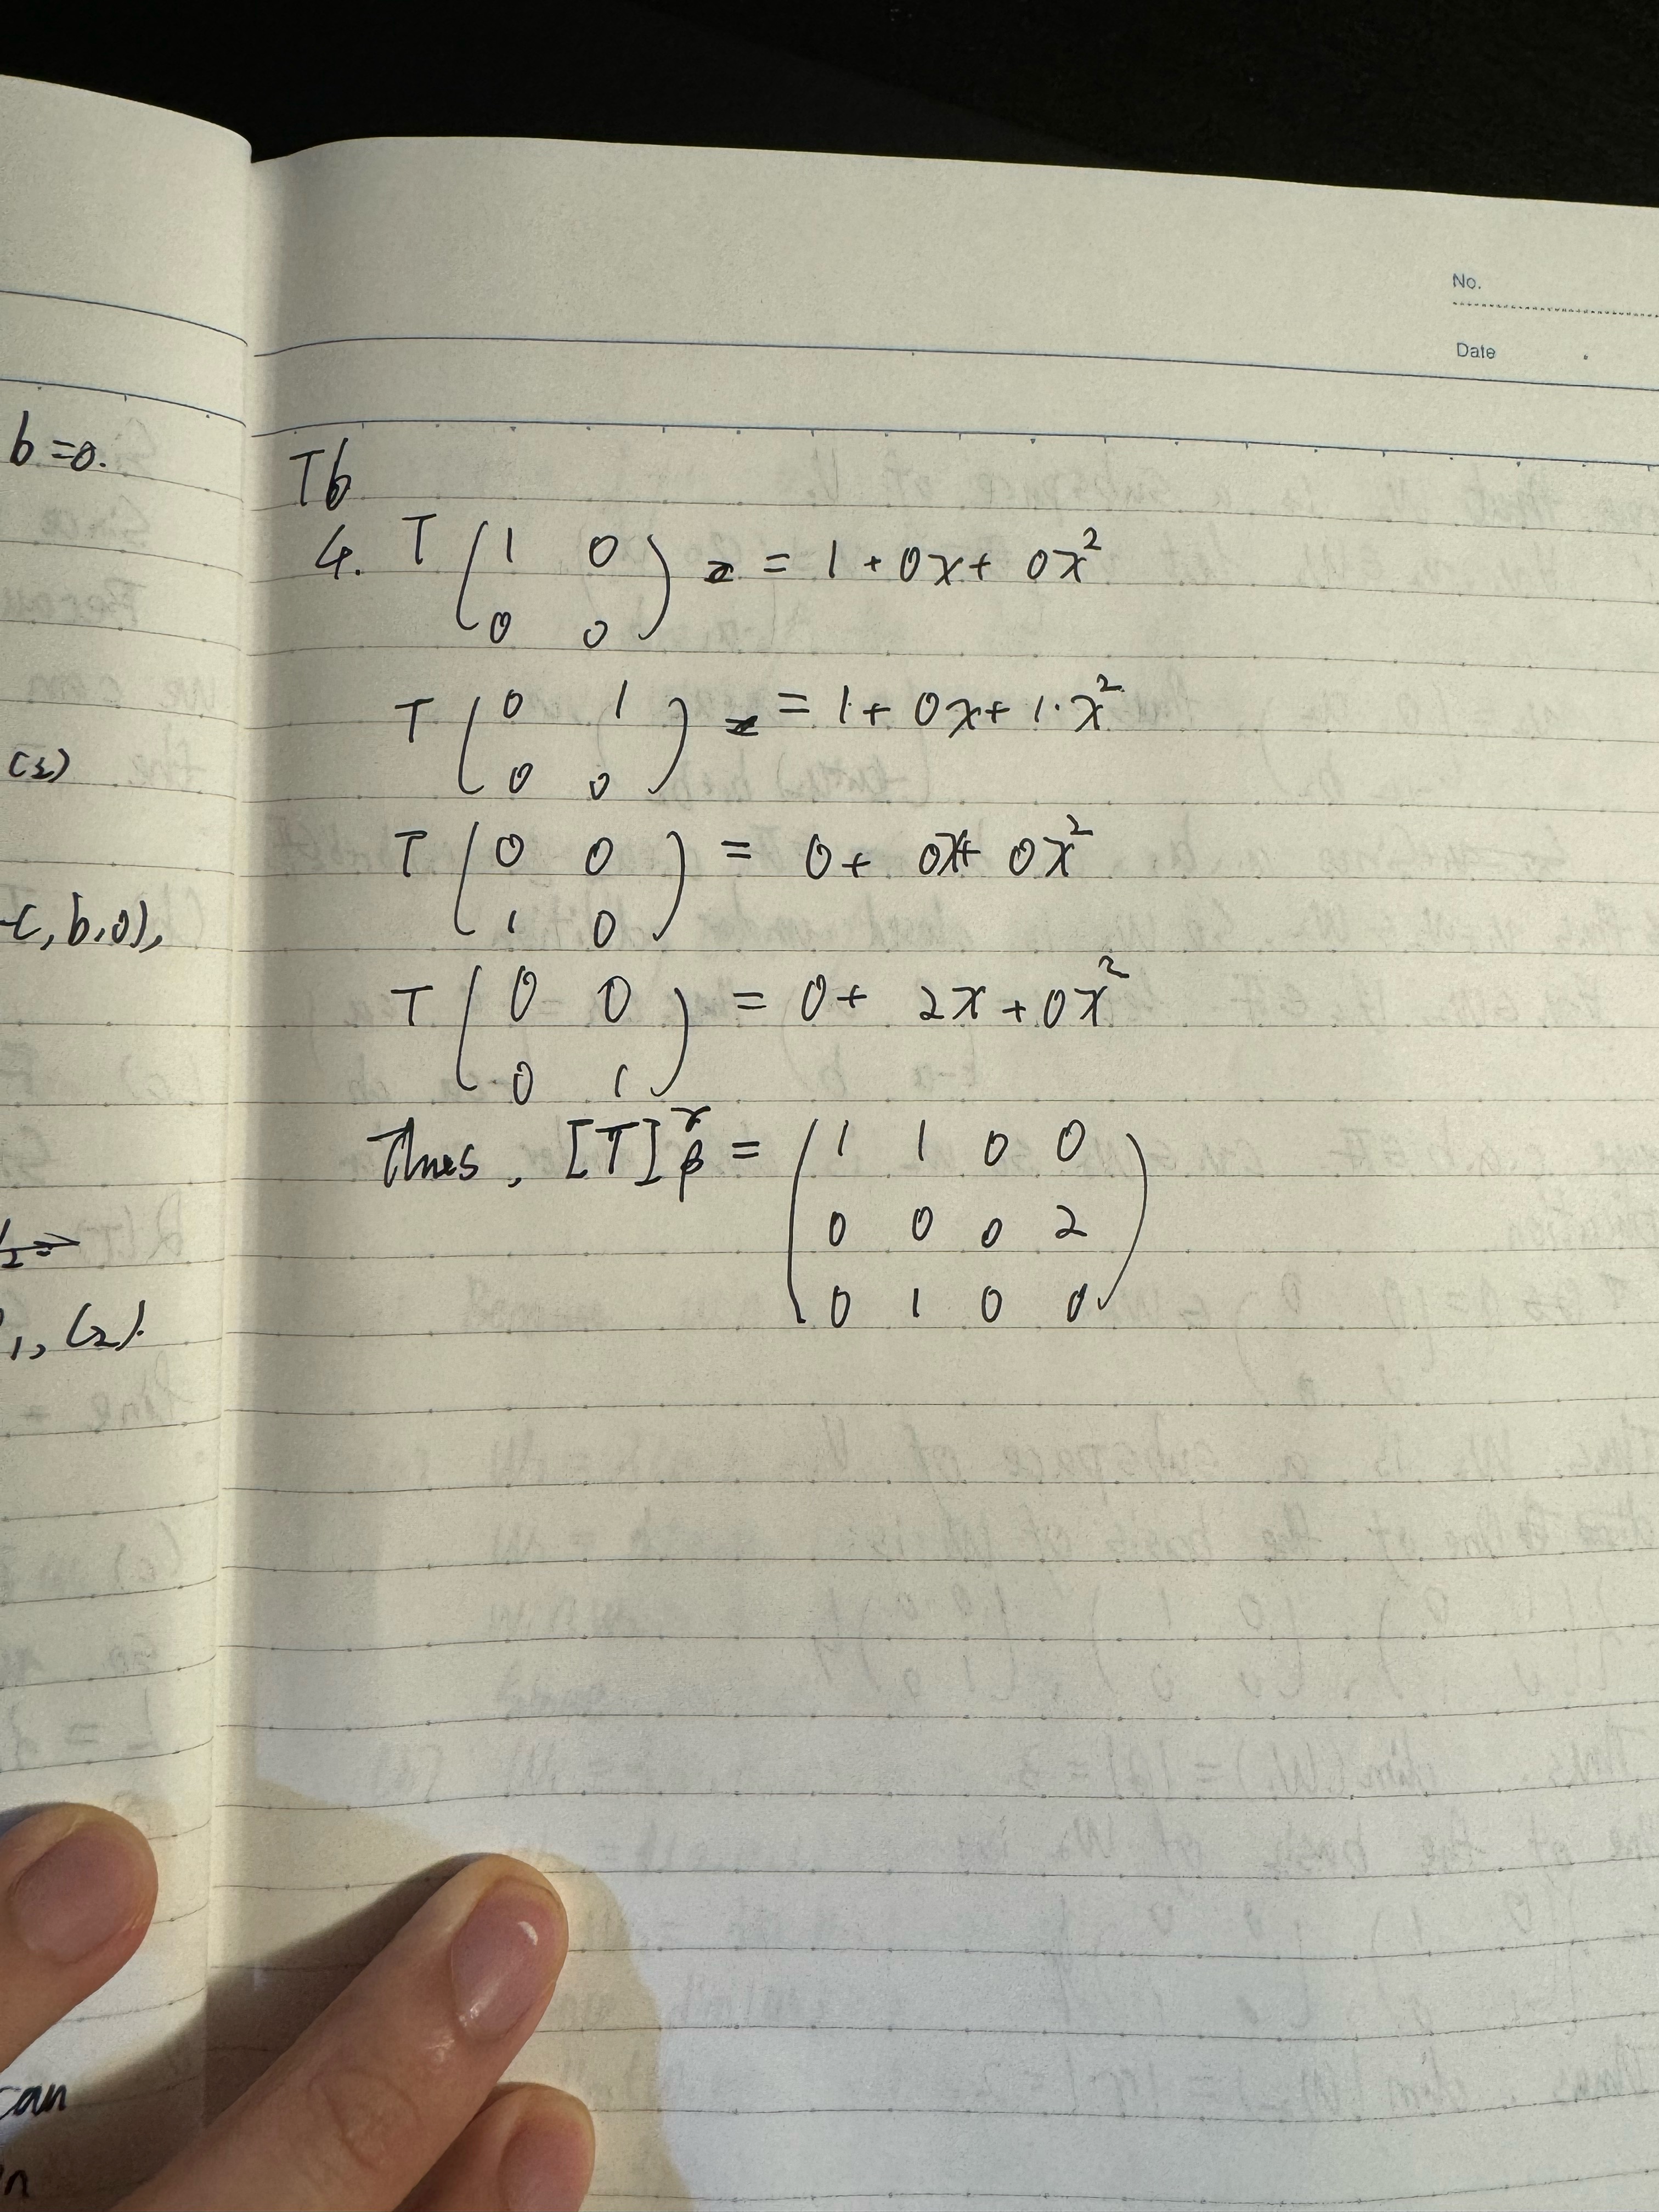 b=0.
(2)
-c, b, 0),
1, (2).
can
n
No.
Date
Tb
4. T ( 1 0
0 0 ) = 1 + 0x + 0x²
T ( 0 1
0 0 ) = 1 + 0x + 1·x²
T ( 0 0
1 0 ) = 0 + 0x + 0x²
T ( 0 0
0 1 ) = 0 + 2x + 0x²
Thus, [T]ᵞᵦ = ( 1 1 0 0
0 0 0 2
0 1 0 0 )